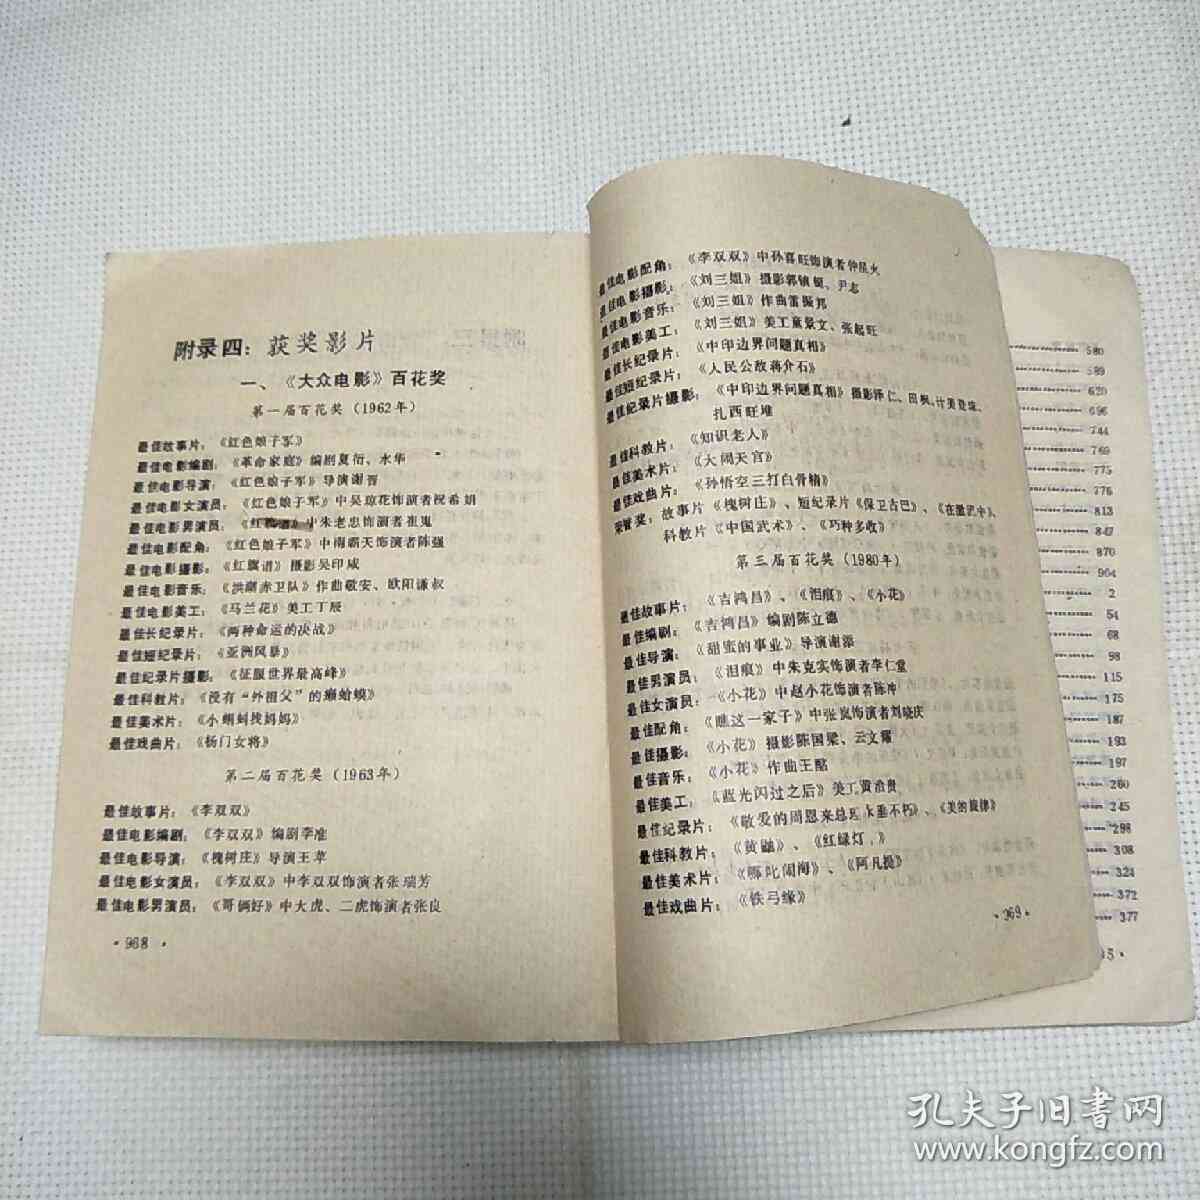 附录四：获奖影片
一、《大众电影》百花奖
第一届百花奖（1962年）
最佳故事片：《红色娘子军》
最佳电影编剧：《革命家庭》编剧夏衍、水华
最佳电影导演：《红色娘子军》导演谢晋
最佳电影女演员：《红色娘子军》中吴琼花饰演者祝希娟
最佳电影男演员：《红旗谱》中朱老忠饰演者崔嵬
最佳电影配角：《红色娘子军》中南霸天饰演者陈强
最佳电影摄影：《红旗谱》摄影吴印咸
最佳电影音乐：《洪湖赤卫队》作曲敬安、欧阳谦叔
最佳电影美工：《马兰花》美工丁辰
最佳长纪录片：《两种命运的决战》
最佳短纪录片：《亚洲风暴》
最佳纪录片摄影：《征服世界最高峰》
最佳科教片：《没有“外祖父”的癞蛤蟆》
最佳美术片：《小蝌蚪找妈妈》
最佳戏曲片：《杨门女将》
第二届百花奖（1963年）
最佳故事片：《李双双》
最佳电影编剧：《李双双》编剧李准
最佳电影导演：《槐树庄》导演王苹
最佳电影女演员：《李双双》中李双双饰演者张瑞芳
最佳电影男演员：《哥俩好》中大虎、二虎饰演者张良
·968·
最佳电影配角：《李双双》中孙喜旺饰演者仲星火
最佳电影摄影：《刘三姐》摄影郭镇铤、尹志
最佳电影音乐：《刘三姐》作曲雷振邦
最佳电影美工：《刘三姐》美工童景文、张起旺
最佳长纪录片：《中印边界问题真相》
最佳短纪录片：《人民公敌蒋介石》
最佳纪录片摄影：《中印边界问题真相》摄影泽仁、田枫、计美登珠、
扎西旺堆
最佳科教片：《知识老人》
最佳美术片：《大闹天宫》
最佳戏曲片：《孙悟空三打白骨精》
荣誉奖：故事片《槐树庄》、短纪录片《保卫古巴》、《在激流中人
科教片《中国武术》、《巧种多收》
第三届百花奖（1980年）
最佳故事片：《吉鸿昌》、《泪痕》、《小花》
最佳编剧：《吉鸿昌》编剧陈立德
最佳导演：《甜蜜的事业》导演谢添
最佳男演员：《泪痕》中朱克实饰演者李仁堂
最佳女演员：《小花》中赵小花饰演者陈冲
最佳配角：《瞧这一家子》中张岚饰演者刘晓庆
最佳摄影：《小花》摄影陈国梁、云文耀
最佳音乐：《小花》作曲王酩
最佳美工：《蓝光闪过之后》美工贾治贵
最佳纪录片：《敬爱的周恩来总理永垂不朽》、《美的旋律》
最佳科教片：《黄鼬》、《红绿灯》
最佳美术片：《哪吒闹海》、《阿凡提》
最佳戏曲片：《铁弓缘》
·969·
580
589
620
696
744
769
775
776
813
847
870
964
2
54
68
98
115
175
187
193
197
245
298
308
324
372
377
孔夫子旧书网
www.kongfz.com